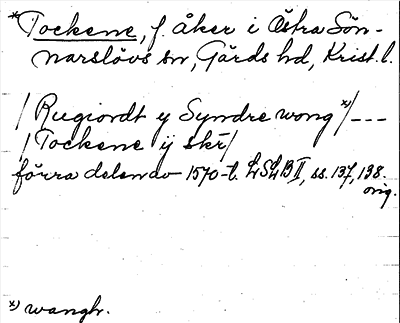 *Tockene, f. åker i Östra Sön-
narslövs sn, Gärds hd, Krist. l.
/Rugiordt y Syndre wong*)/---
/Tockene ÿ skr/
förra delen av 1570-t. LSLB II, ss. 137, 138.
orig.
*) wangh.